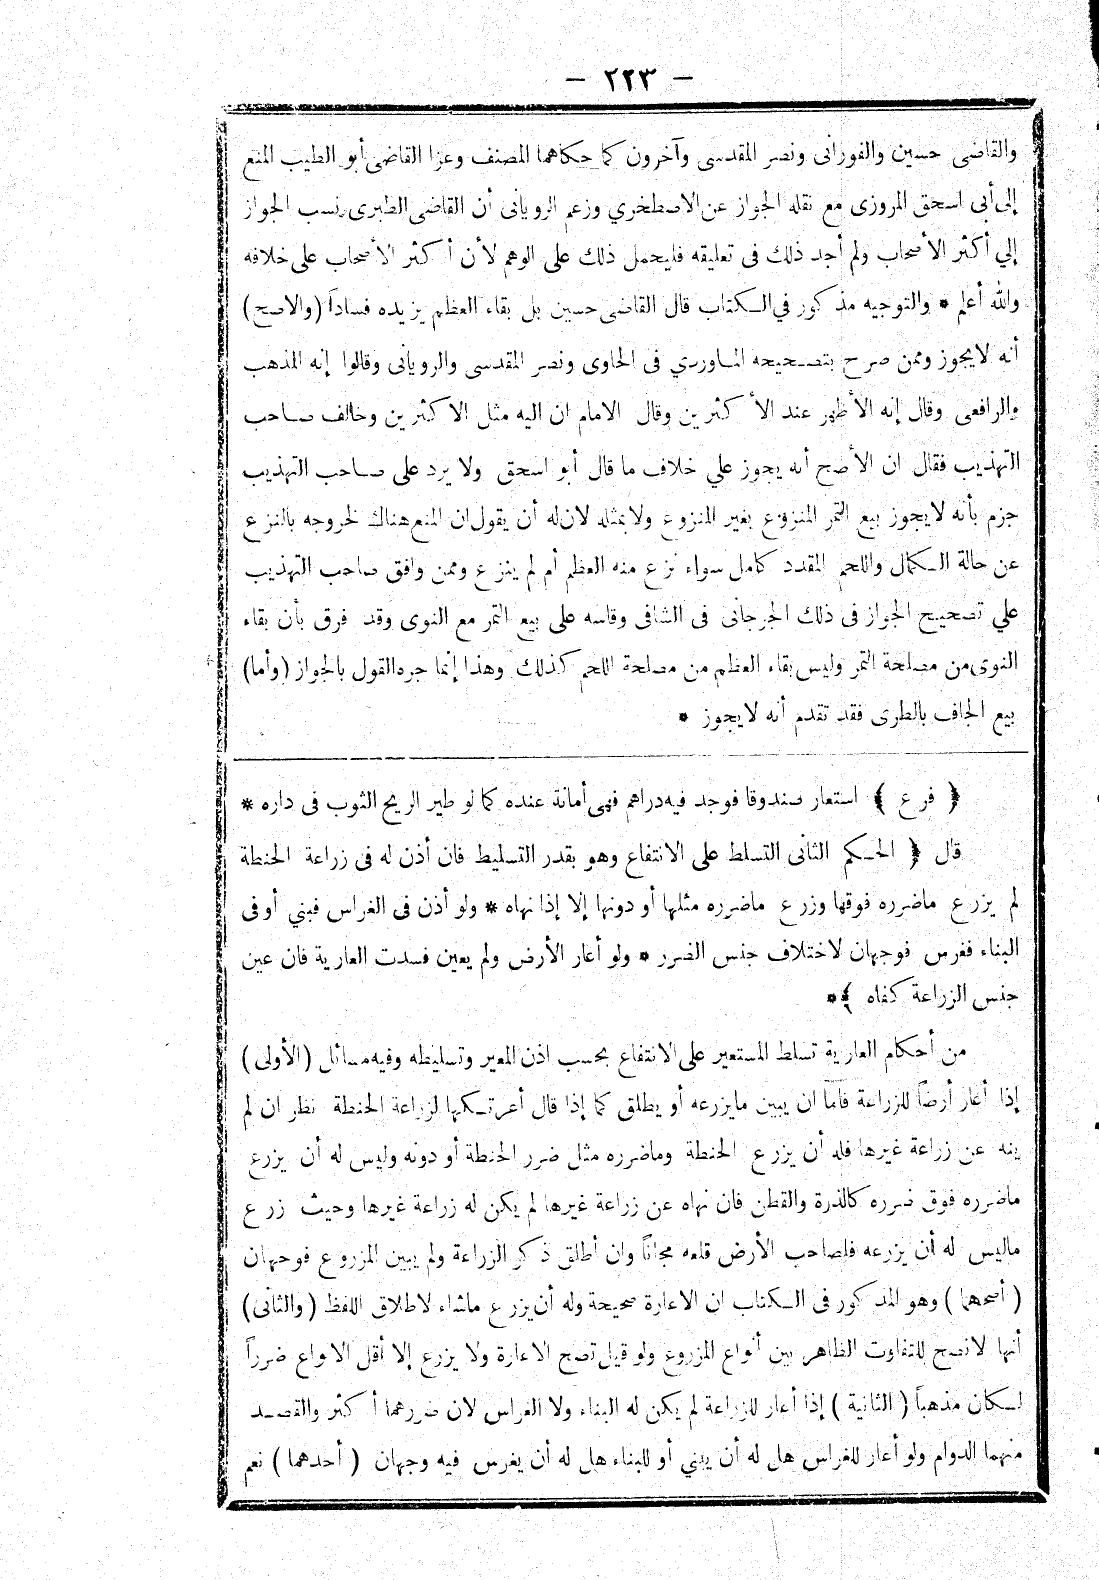 — ٢٢٣ —
والقاضى حسين والفورانى ونصر المقدسى وآخرون كما حكاهما المصنف وعزا القاضى أبو الطيب المنع
إلى أبى اسحق المروزى مع نقله الجواز عن الاصطخري وزعم الرويانى أن القاضى الطبرى نسب الجواز
إلي أكثر الأصحاب ولم أجد ذلك فى تعليقه فليحمل ذلك على الوهم لأن أكثر الأصحاب على خلافه
والله أعلم * والتوجيه مذكور في الكتاب قال القاضى حسين بل بقاء العظم يزيده فساداً (والاصح)
أنه لا يجوز وممن صرح بتصحيحه الماوردي فى الحاوى ونصر المقدسى والرويانى وقالوا إنه المذهب
والرافعى وقال إنه الأظهر عند الأكثرين وقال الامام ان اليه مثل الاكثرين وخالف صاحب
التهذيب فقال ان الأصح أنه يجوز علي خلاف ما قال أبو اسحق ولا يرد على صاحب التهذيب
جزم بأنه لا يجوز بيع التمر المنزوع بغير المنزوع ولا بمثله لان له أن يقول ان المنع هناك لخروجه بالنزع
عن حالة الكمال واللحم المقدد كامل سواء نزع منه العظم أم لم ينزع وممن وافق صاحب التهذيب
علي تصحيح الجواز فى ذلك الجرجانى فى الشافى وقاسه على بيع التمر مع النوى وقد فرق بأن بقاء
النوى من مصلحة التمر وليس بقاء العظم من مصلحة اللحم كذلك وهذا إنما جره القول بالجواز (وأما)
بيع الجاف بالطرى فقد تقدم أنه لا يجوز *
﴿ فرع ﴾ استعار صندوقا فوجد فيه دراهم فهى أمانة عنده كما لو طير الريح الثوب فى داره *
قال ﴿ الحكم الثانى التسلط على الانتفاع وهو بقدر التسليط فان أذن له فى زراعة الحنطة
لم يزرع ماضرره فوقها وزرع ماضرره مثلها أو دونها إلا إذا نهاه * ولو أذن فى الغراس فبني أو فى
البناء فغرس فوجهان لاختلاف جنس الضرر * ولو أعار الأرض ولم يعين فسدت العارية فان عين
جنس الزراعة كفاه ﴾ *
من أحكام العارية تسلط المستعير على الانتفاع بحسب اذن المعير وتسليطه وفيه مسائل (الأولى)
إذا أعار أرضاً للزراعة فاما ان يبين مايزرعه أو يطلق كما إذا قال أعرتكها لزراعة الحنطة نظر ان لم
ينه عن زراعة غيرها فله أن يزرع الحنطة وماضرره مثل ضرر الحنطة أو دونه وليس له أن يزرع
ماضرره فوق ضرره كالذرة والقطن فان نهاه عن زراعة غيرها لم يكن له زراعة غيرها وحيث زرع
ماليس له أن يزرعه فلصاحب الأرض قلعه مجاناً وان أطلق ذكر الزراعة ولم يبين المزروع فوجهان
( أصحهما ) وهو المذكور فى الكتاب ان الاعارة صحيحة وله أن يزرع ماشاء لاطلاق اللفظ (والثانى)
أنها لاتصح للتفاوت الظاهر بين أنواع المزروع ولو قيل تصح الاعارة ولا يزرع إلا أقل الانواع ضرراً
لكان مذهباً ( الثانية ) إذا أعار للزراعة لم يكن له البناء ولا الغراس لان ضررهما أكثر والقصد
منهما الدوام ولو أعار للغراس هل له أن يبني أو للبناء هل له أن يغرس فيه وجهان ( أحدهما ) نعم